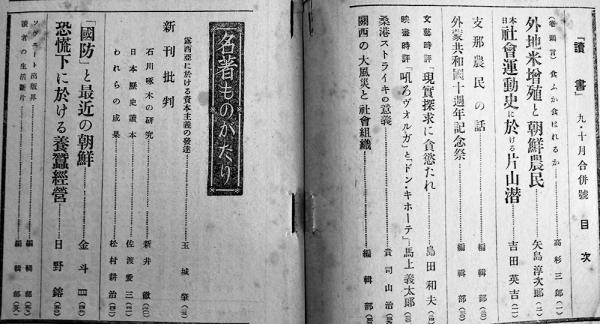 「讀書」 九・十月合併號 目次
(卷頭言) 食ふか食はれるか 高杉三郎(一)
外地米增殖と朝鮮農民 矢島淳次郎(二)
日本社會運動史に於ける片山潜 吉田英吉
支那農民の話 編輯部
外蒙共和國十週年記念祭 編輯部
文藝時評「現實探求に貪慾たれ」 島田和夫
映畫時評「吼ろヴォルガ」と「ドン・キホーテ」 馬上義太郎
桑港ストライキの意義 貴司山治
關西の大風災と社會組織 編輯部
名著ものがたり
露西亞に於ける資本主義の發達 玉城肇
新刊批判
石川啄木の研究 新井徹
日本歴史讀本 佐渡愛三
われらの成果 松村耕治
「國防」と最近の朝鮮 金斗
恐慌下に於ける養蠶經營 日野鎔
ソヴエート出版界 編輯部
讀者の生活斷片 編輯部